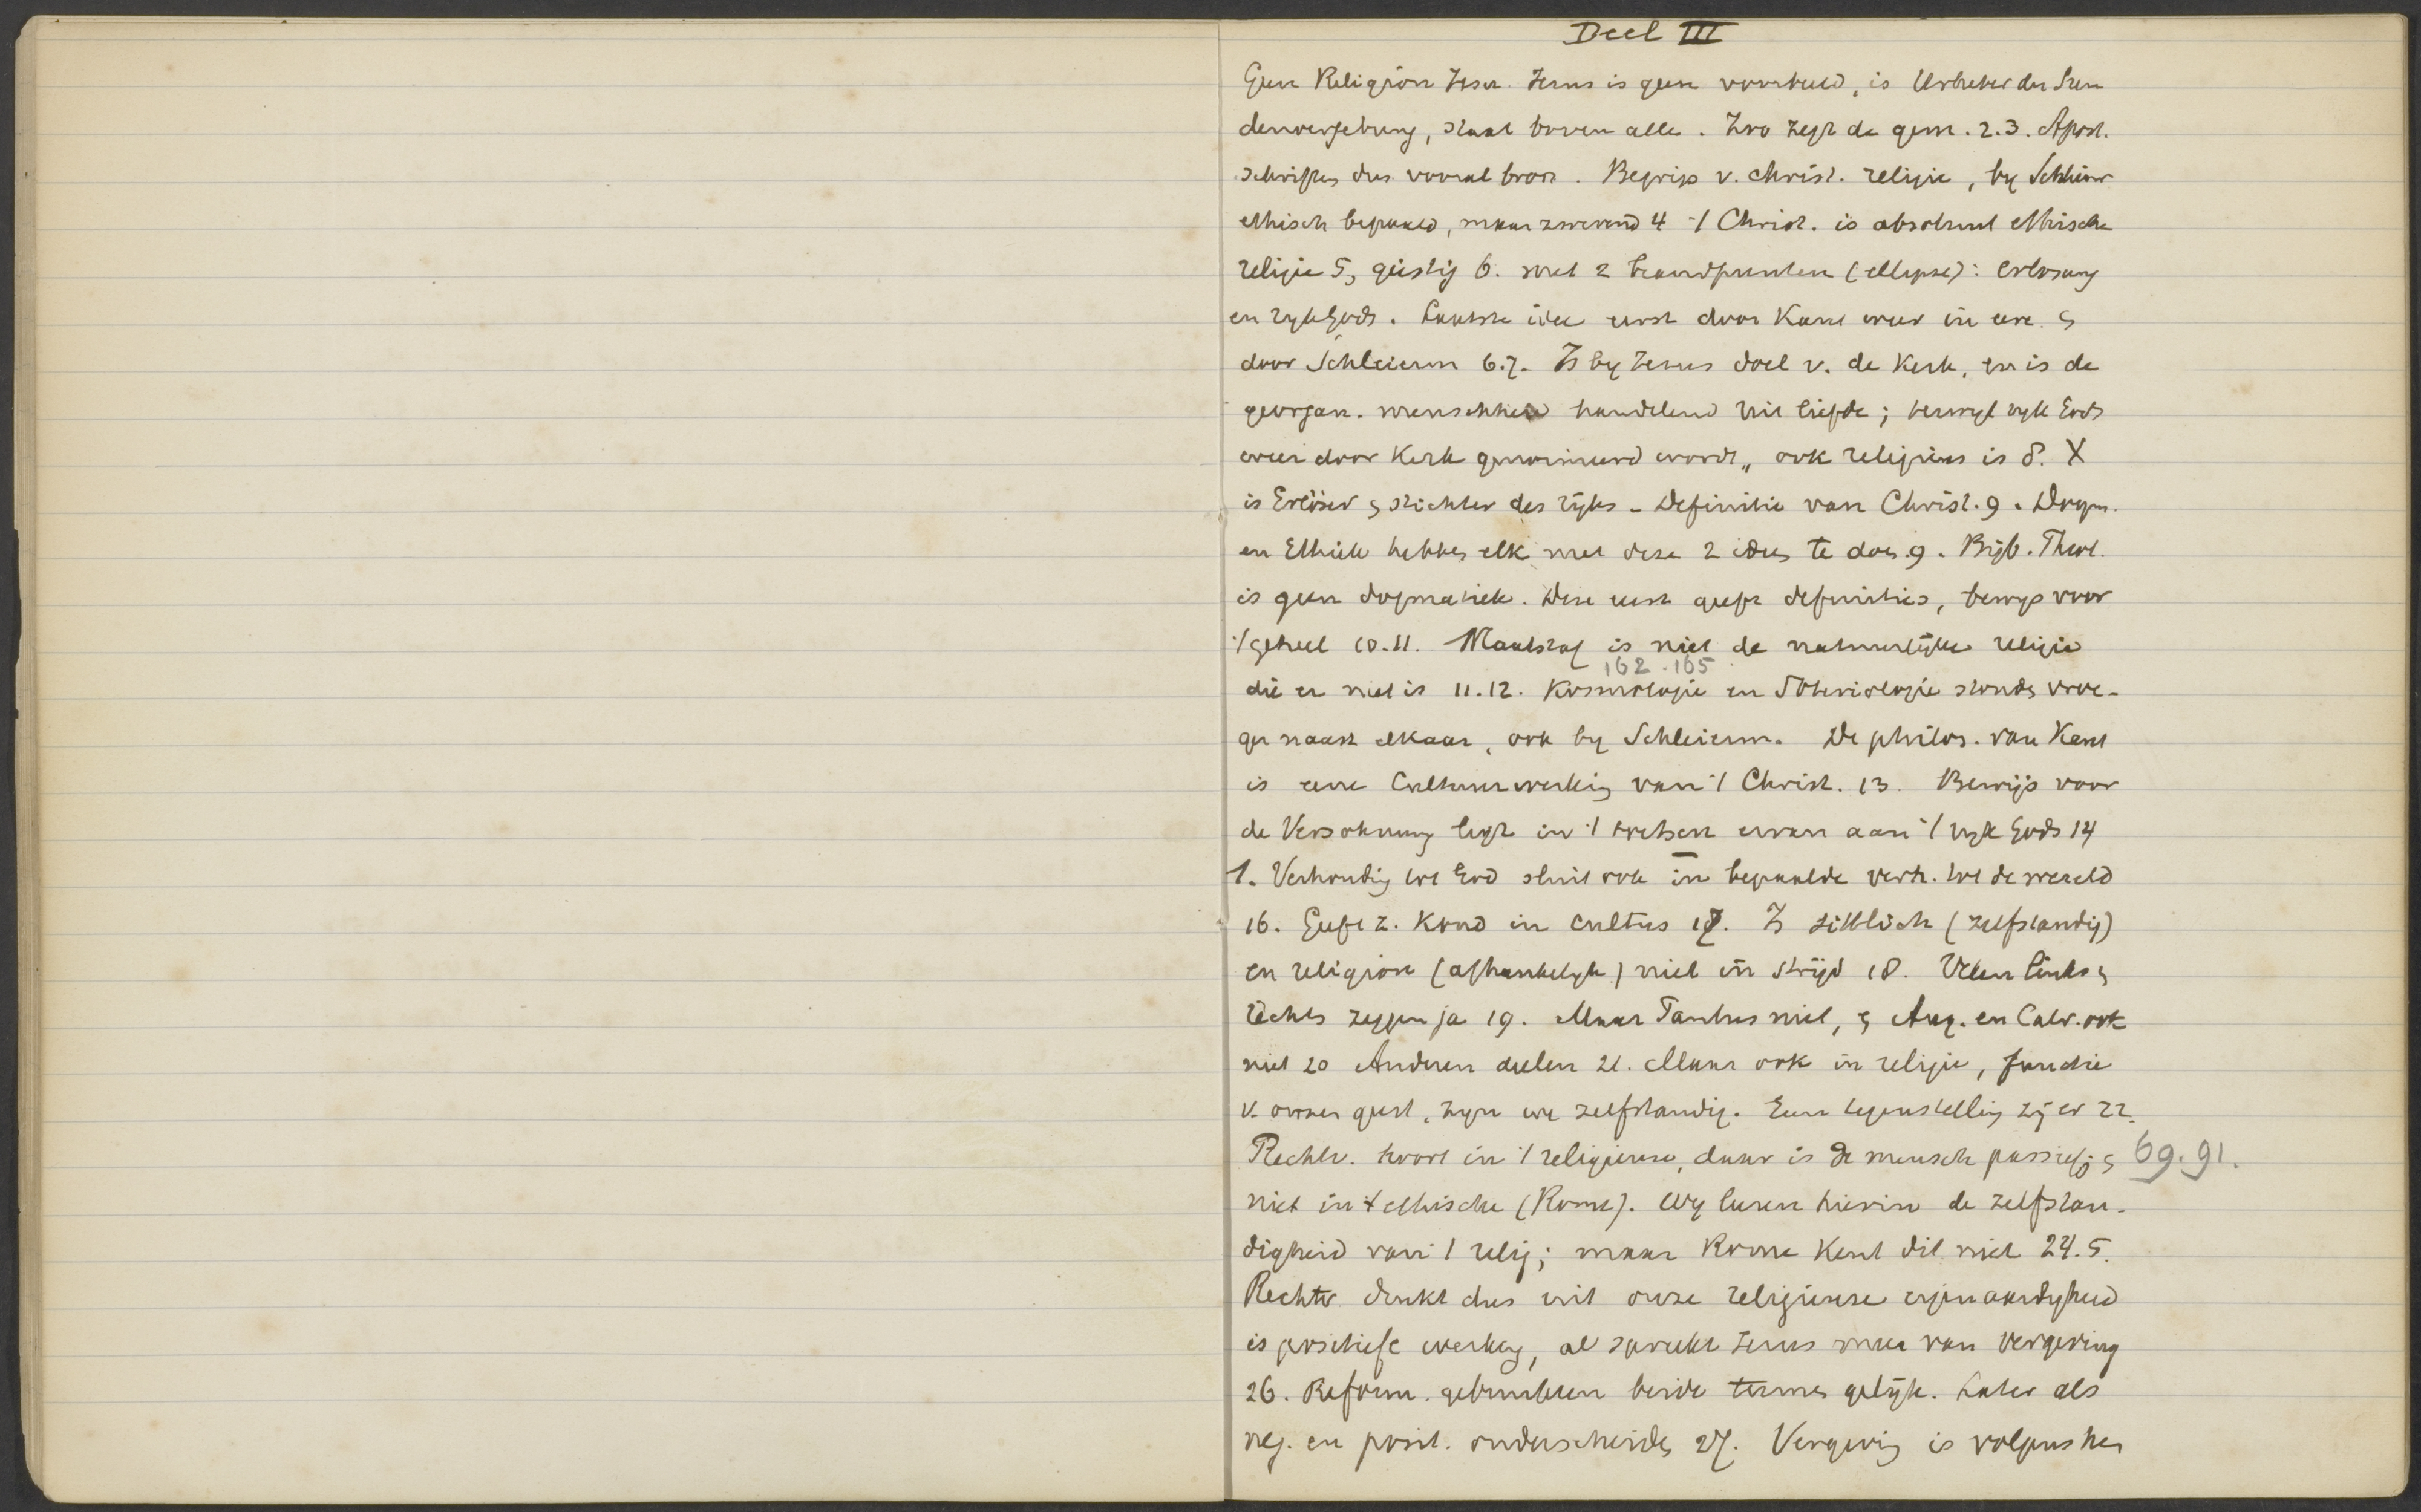 Deel III
Geen Religion Jesu. Jezus is geen voorbeeld, is Urheber der Sün
denvergebung, staat boven alle. Zoo zegt de gem. 2.3. Apost.
schriften dus vooral bron. Begrip v. christ. religie, by Schleierm
ethisch bepaald, maar zwevend 4 't Christ. is absoluut ethische
religie 5, geistig 6. met 2 brandpunten (ellipse): Erlosung
en ryk Gods. Laatste idee eerst door Kant weer in eere &
door Schleierm 6.7. Is by Jezus doel v. de Kerk, en is de
georgan. menschheid handelend uit liefde; terwyl ryk Gods
weer door Kerk genomineerd wordt, ook religieus is 8. X
is Erlöser & stichter des ryks - Definitie van Christ. 9. Dogm.
en Ethiek hebben elk met deze 2 ideën te doen 9. Bijb. Theol.
is geen dogmatiek. Deze eerst geeft definities, bewys voor
't geheel 10.11. Maatstaf is niet de natuurlijke religie
162.165
die er niet is 11.12. Kosmologie en Soteriologie stonden vroe-
ger naast elkaar, ook by Schleierm. De philos. van Kant
is eene Cultuurwerking van 't Christ. 13. Bewijs voor
de Versohnung ligt in 't trekken ervan aan 't ryk Gods 14
1. Verhouding tot God sluit ook in bepaalde verh. tot de wereld
16. Geeft z. kond in cultus 17. Is sittlich (zelfstandig)
en religion (afhankelyk) niet in strijd 18. Velen links &
rechts zeggen ja 19. Maar Paulus niet, & Aug. en Calv. ook
niet 20 Anderen deelen 21. Maar ook in religie, functie
v. onzen geest, zyn we zelfstandig. Geen tegenstelling zij er 22.
Rechtv. hoort in 't religieuse, daar is de mensch passief; & 69.91.
niet in 't ethische (Rome). Wy leeren hierin de zelfstan-
digheid van 't relig; maar Rome kent dit niet 24.5.
Rechtv drukt dus uit onze religieuse eigenaardigheid
is positiefe werking, al spreekt Jezus meer van vergeving
26. Reform. gebruikten beide termen gelijk. Later als
neg. en posit. onderscheiden 27. Vergeving is volgens hen